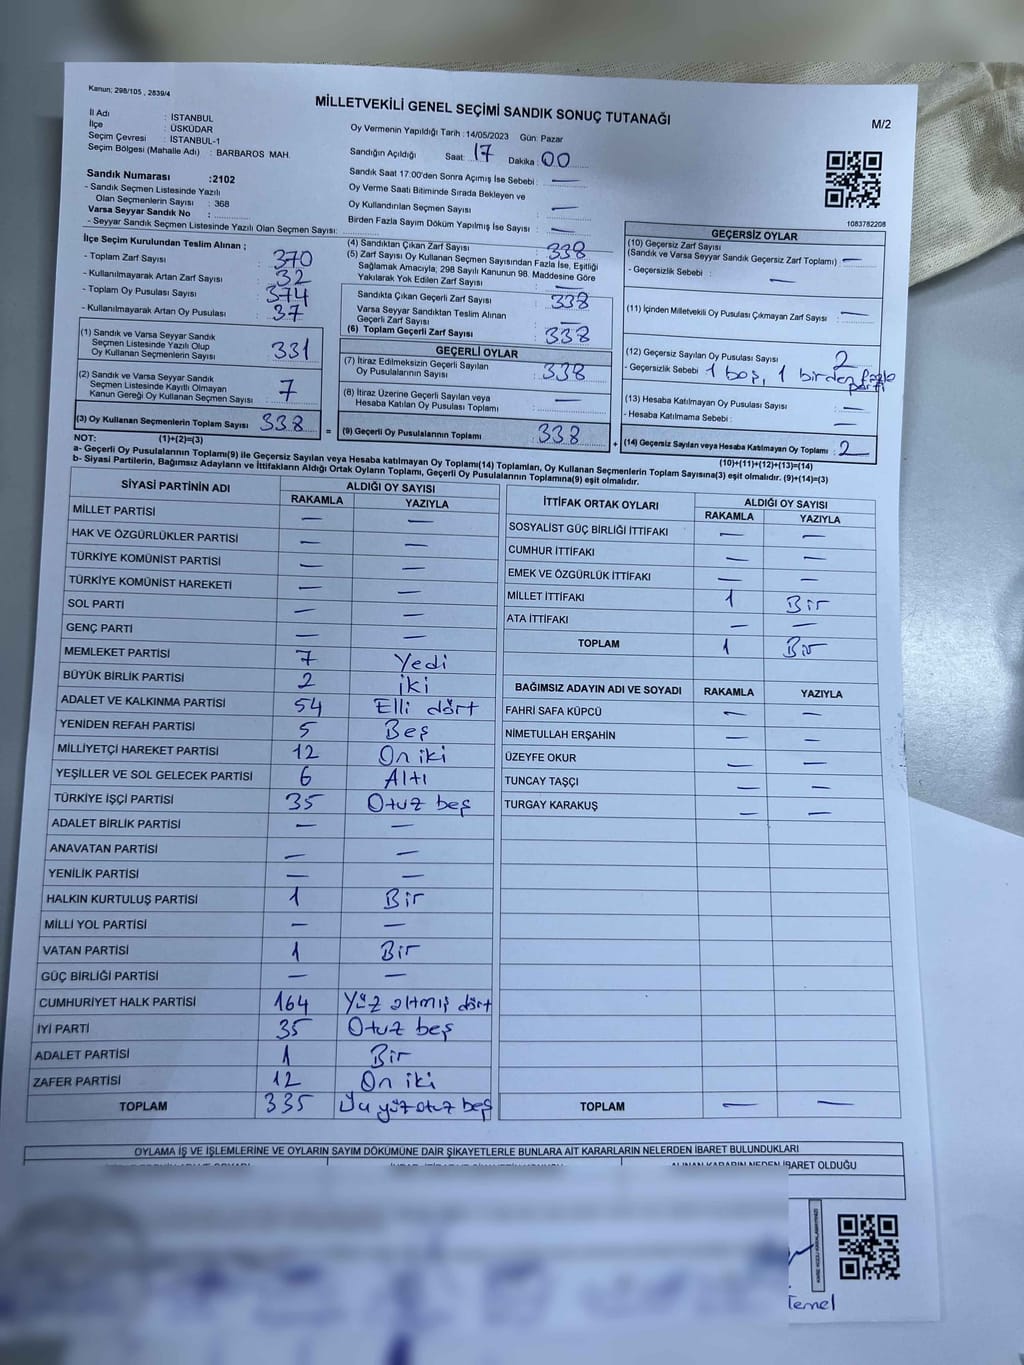 Kanun: 298/105 , 2839/4
MİLLETVEKİLİ GENEL SEÇİMİ SANDIK SONUÇ TUTANAĞI
M/2
İl Adı : İSTANBUL
İlçe : ÜSKÜDAR
Seçim Çevresi : İSTANBUL-1
Seçim Bölgesi (Mahalle Adı) : BARBAROS MAH.
Oy Vermenin Yapıldığı Tarih : 14/05/2023 Gün: Pazar
Sandığın Açıldığı Saat: 17 Dakika: 00
Sandık Saat 17:00'den Sonra Açılmış İse Sebebi : —
Oy Verme Saati Bitiminde Sırada Bekleyen ve
Oy Kullandırılan Seçmen Sayısı : —
Birden Fazla Sayım Döküm Yapılmış İse Sayısı : —
Sandık Numarası :2102
- Sandık Seçmen Listesinde Yazılı
Olan Seçmenlerin Sayısı : 368
Varsa Seyyar Sandık No :
- Seyyar Sandık Seçmen Listesinde Yazılı Olan Seçmen Sayısı:
1083782208
İlçe Seçim Kurulundan Teslim Alınan ;
- Toplam Zarf Sayısı : 370
- Kullanılmayarak Artan Zarf Sayısı : 32
- Toplam Oy Pusulası Sayısı : 374
- Kullanılmayarak Artan Oy Pusulası : 37
(1) Sandık ve Varsa Seyyar Sandık
Seçmen Listesinde Yazılı Olup
Oy Kullanan Seçmenlerin Sayısı : 331
(2) Sandık ve Varsa Seyyar Sandık
Seçmen Listesinde Kayıtlı Olmayan
Kanun Gereği Oy Kullanan Seçmen Sayısı : 7
(3) Oy Kullanan Seçmenlerin Toplam Sayısı : 338
(4) Sandıktan Çıkan Zarf Sayısı : 338
(5) Zarf Sayısı Oy Kullanan Seçmen Sayısından Fazla İse, Eşitliği
Sağlamak Amacıyla, 298 Sayılı Kanunun 98. Maddesine Göre
Yakılarak Yok Edilen Zarf Sayısı : —
Sandıkta Çıkan Geçerli Zarf Sayısı : 338
Varsa Seyyar Sandıktan Teslim Alınan
Geçerli Zarf Sayısı : —
(6) Toplam Geçerli Zarf Sayısı : 338
GEÇERLİ OYLAR
(7) İtiraz Edilmeksizin Geçerli Sayılan
Oy Pusulalarının Sayısı : 338
(8) İtiraz Üzerine Geçerli Sayılan veya
Hesaba Katılan Oy Pusulası Toplamı : —
= (9) Geçerli Oy Pusulalarının Toplamı : 338
GEÇERSİZ OYLAR
(10) Geçersiz Zarf Sayısı
(Sandık ve Varsa Seyyar Sandık Geçersiz Zarf Toplamı) : —
- Geçersizlik Sebebi : —
(11) İçinden Milletvekili Oy Pusulası Çıkmayan Zarf Sayısı : —
(12) Geçersiz Sayılan Oy Pusulası Sayısı : 2
- Geçersizlik Sebebi : 1 boş, 1 birden fazla
parti
(13) Hesaba Katılmayan Oy Pusulası Sayısı : —
- Hesaba Katılmama Sebebi : —
+ (14) Geçersiz Sayılan veya Hesaba Katılmayan Oy Toplamı : 2
NOT: (1)+(2)=(3)
(10)+(11)+(12)+(13)=(14)
a- Geçerli Oy Pusulalarının Toplamı(9) ile Geçersiz Sayılan veya Hesaba katılmayan Oy Toplamı(14) Toplamları, Oy Kullanan Seçmenlerin Toplam Sayısına(3) eşit olmalıdır. (9)+(14)=(3)
b- Siyasi Partilerin, Bağımsız Adayların ve İttifakların Aldığı Ortak Oyların Toplamı, Geçerli Oy Pusulalarının Toplamına(9) eşit olmalıdır.
SİYASİ PARTİNİN ADI ALDIĞI OY SAYISI
RAKAMLA YAZIYLA
MİLLET PARTİSİ — —
HAK VE ÖZGÜRLÜKLER PARTİSİ — —
TÜRKİYE KOMÜNİST PARTİSİ — —
TÜRKİYE KOMÜNİST HAREKETİ — —
SOL PARTİ — —
GENÇ PARTİ — —
MEMLEKET PARTİSİ 7 Yedi
BÜYÜK BİRLİK PARTİSİ 2 iki
ADALET VE KALKINMA PARTİSİ 54 Elli dört
YENİDEN REFAH PARTİSİ 5 Beş
MİLLİYETÇİ HAREKET PARTİSİ 12 On iki
YEŞİLLER VE SOL GELECEK PARTİSİ 6 Altı
TÜRKİYE İŞÇİ PARTİSİ 35 Otuz beş
ADALET BİRLİK PARTİSİ — —
ANAVATAN PARTİSİ — —
YENİLİK PARTİSİ — —
HALKIN KURTULUŞ PARTİSİ 1 Bir
MİLLİ YOL PARTİSİ — —
VATAN PARTİSİ 1 Bir
GÜÇ BİRLİĞİ PARTİSİ — —
CUMHURİYET HALK PARTİSİ 164 Yüz altmış dört
İYİ PARTİ 35 Otuz beş
ADALET PARTİSİ 1 Bir
ZAFER PARTİSİ 12 On iki
TOPLAM 335 Üç yüz otuz beş
İTTİFAK ORTAK OYLARI ALDIĞI OY SAYISI
RAKAMLA YAZIYLA
SOSYALİST GÜÇ BİRLİĞİ İTTİFAKI — —
CUMHUR İTTİFAKI — —
EMEK VE ÖZGÜRLÜK İTTİFAKI — —
MİLLET İTTİFAKI 1 Bir
ATA İTTİFAKI — —
TOPLAM 1 Bir
BAĞIMSIZ ADAYIN ADI VE SOYADI RAKAMLA YAZIYLA
FAHRİ SAFA KÜPCÜ — —
NİMETULLAH ERŞAHİN — —
ÜZEYFE OKUR — —
TUNCAY TAŞÇI — —
TURGAY KARAKUŞ — —
TOPLAM — —
OYLAMA İŞ VE İŞLEMLERİNE VE OYLARIN SAYIM DÖKÜMÜNE DAİR ŞİKAYETLERLE BUNLARA AİT KARARLARIN NELERDEN İBARET BULUNDUKLARI
ALINAN KARARIN NEDEN İBARET OLDUĞU
Temel